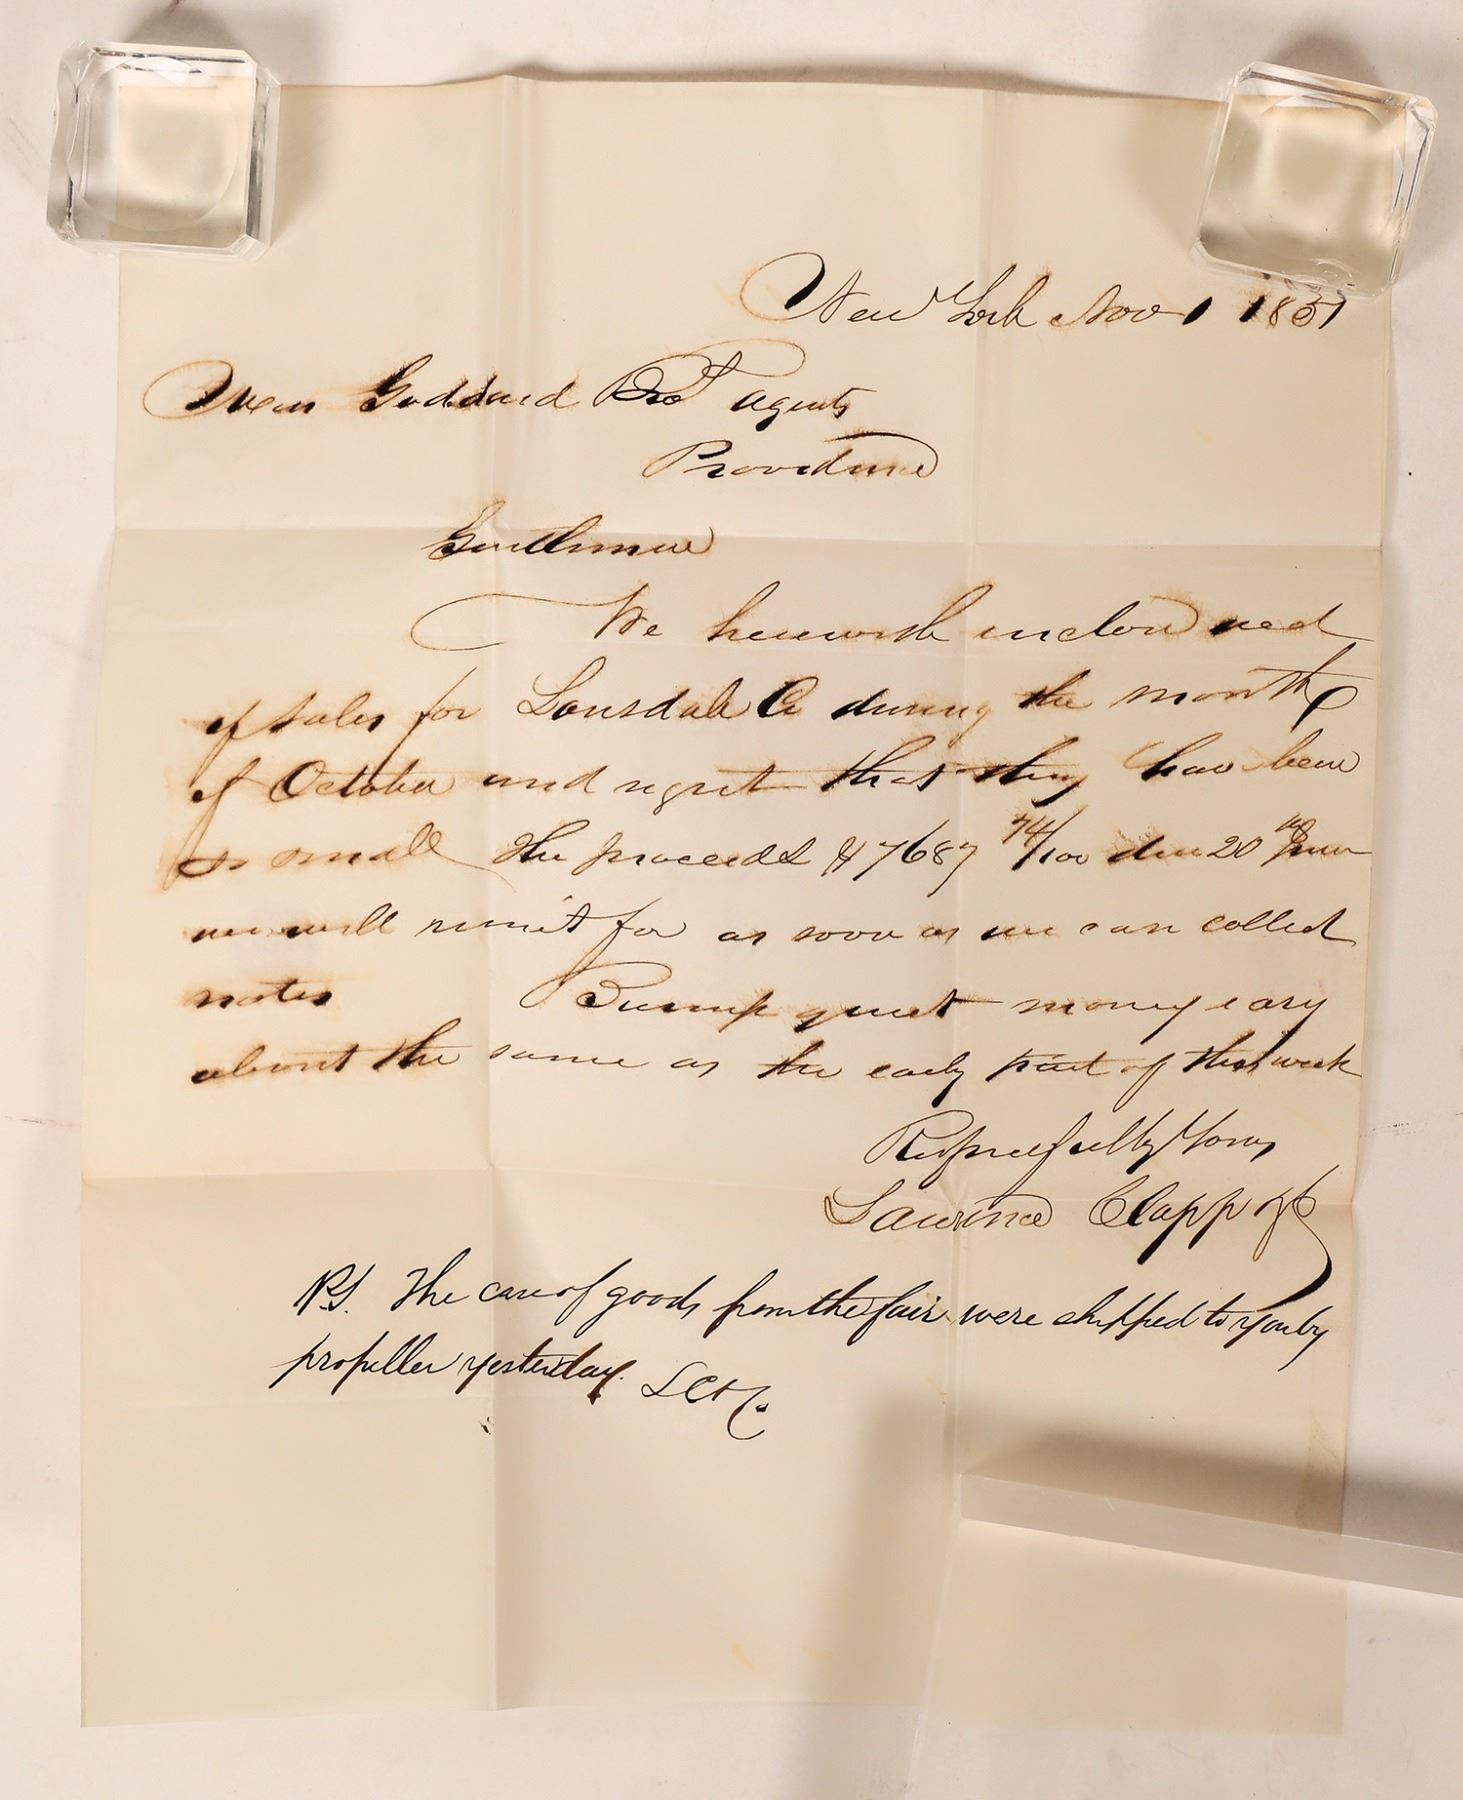 New York Nov 1 1851
Mess Goddard Bros agents
Providence
Gentlemen
We herewith inclose acct
of sales for Lonsdale Co during the month
of October and regret that they have been
so small The proceeds $7687 74/100 due 20
we will remit for as soon as we can collect
notes quiet money easy
about the same as the early part of this week
Respectfully Yours
Lawrence Clapp & Co
P.S. The case of goods from the fair were shipped to you by
propeller yesterday. L C & Co.